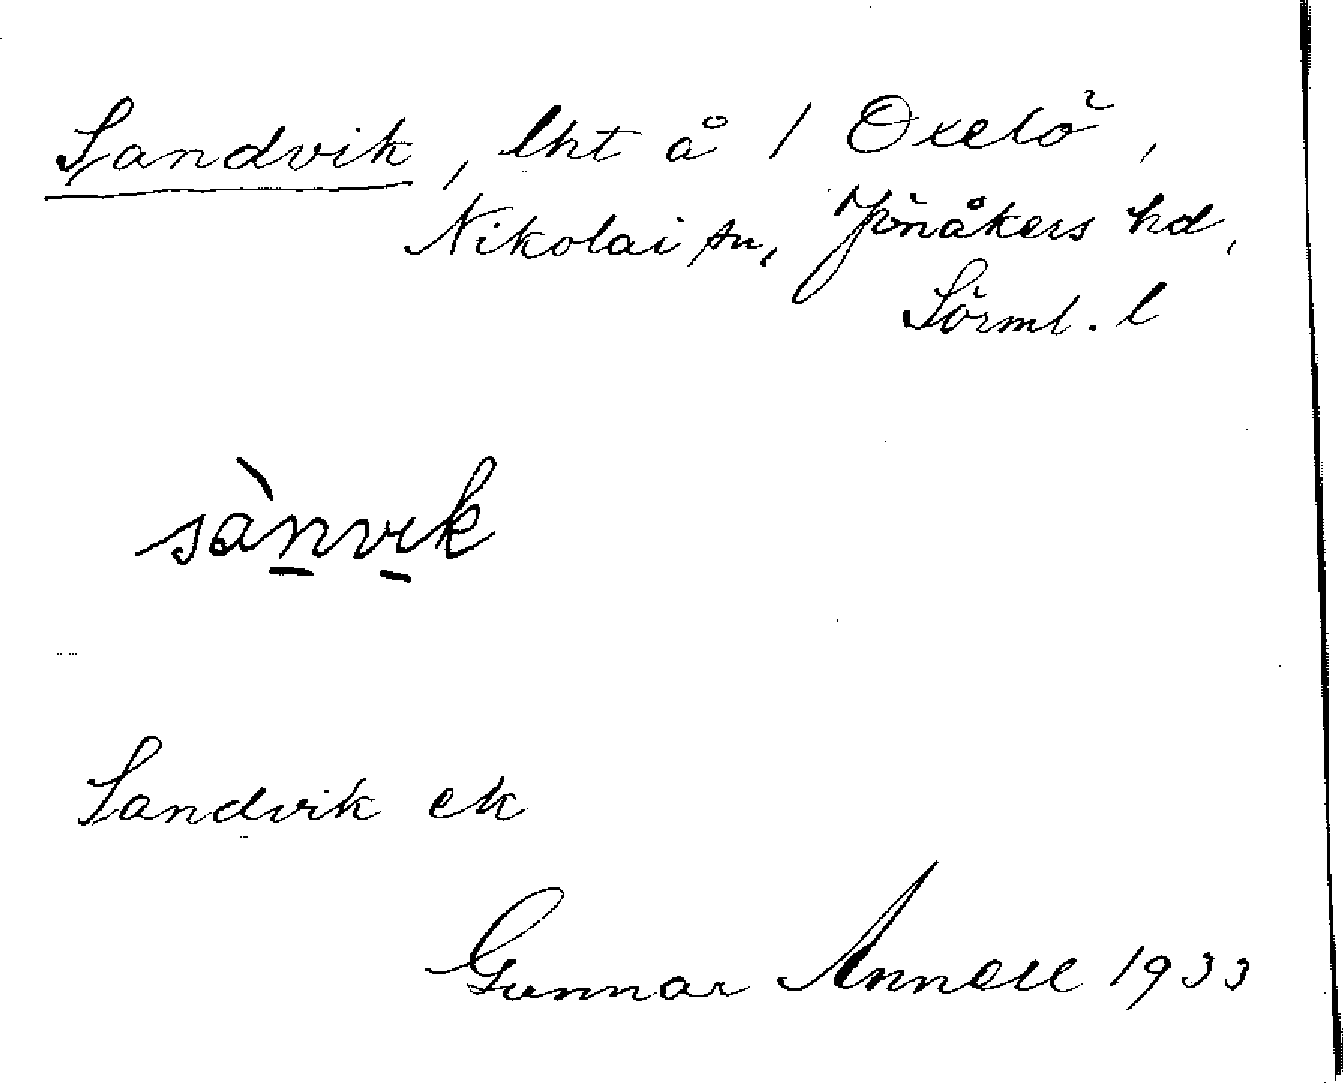 Sandvik, lht å / Oxelö,
Nikolai sn, Jönåkers hd,
Sörml. l
sànvik
Sandvik ek
Gunnar Annell 1933